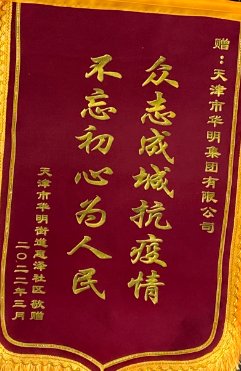 赠：天津市华明集团有限公司
众志成城抗疫情
不忘初心为人民
天津市华明街道惠泽社区 敬赠
二〇二二年三月